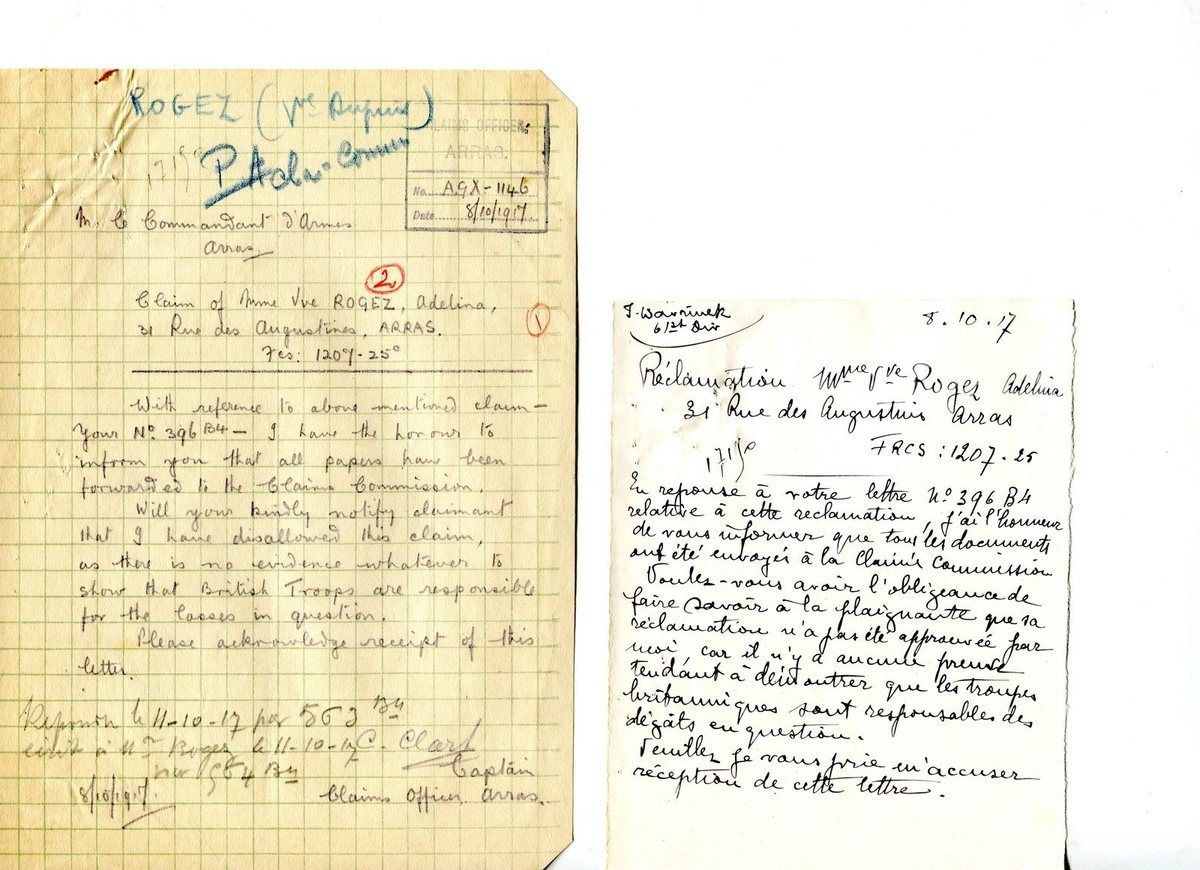 ROGEZ (Vve Dupuis)
CLAIMS OFFICER.
ARRAS.
No. AGX-1146
Date 8/10/1917.
P. Adm. Comm
M. le Commandant d'Armes
Arras.
2
Claim of Mme Vve ROGEZ, Adelina,
31 Rue des Augustines, ARRAS.
1
Fcs: 1207-25c
With reference to above mentioned claim -
Your No. 396 B4 - I have the honour to
inform you that all papers have been
forwarded to the Claims Commission.
Will your kindly notify claimant
that I have disallowed this claim,
as there is no evidence whatever to
show that British Troops are responsible
for the losses in question.
Please acknowledge receipt of this
letter.
le 11-10-17 par 563 B4
écrit à Mme Rogez le 11-10-17
564 B4
C. Clark
Captain
8/10/1917.
Claims Officer. Arras.
61st Div
8.10.17
Réclamation Mme Vve Rogez Adelina
31 Rue des Augustins Arras
FRCS: 1207.25
En reponse à votre lettre No. 396 B4
relative à cette reclamation, j'ai l'honneur
de vous informer que tous les documents
ont été envoyés à la Claims Commission
Voulez-vous avoir l'obligeance de
faire savoir à la plaignante que sa
réclamation n'a pas été approuvée par
moi, car il n'y a aucune preuve
tendant à démontrer que les troupes
britanniques sont responsables des
dégâts en question.
Veuillez je vous prie m'accuser
réception de cette lettre.